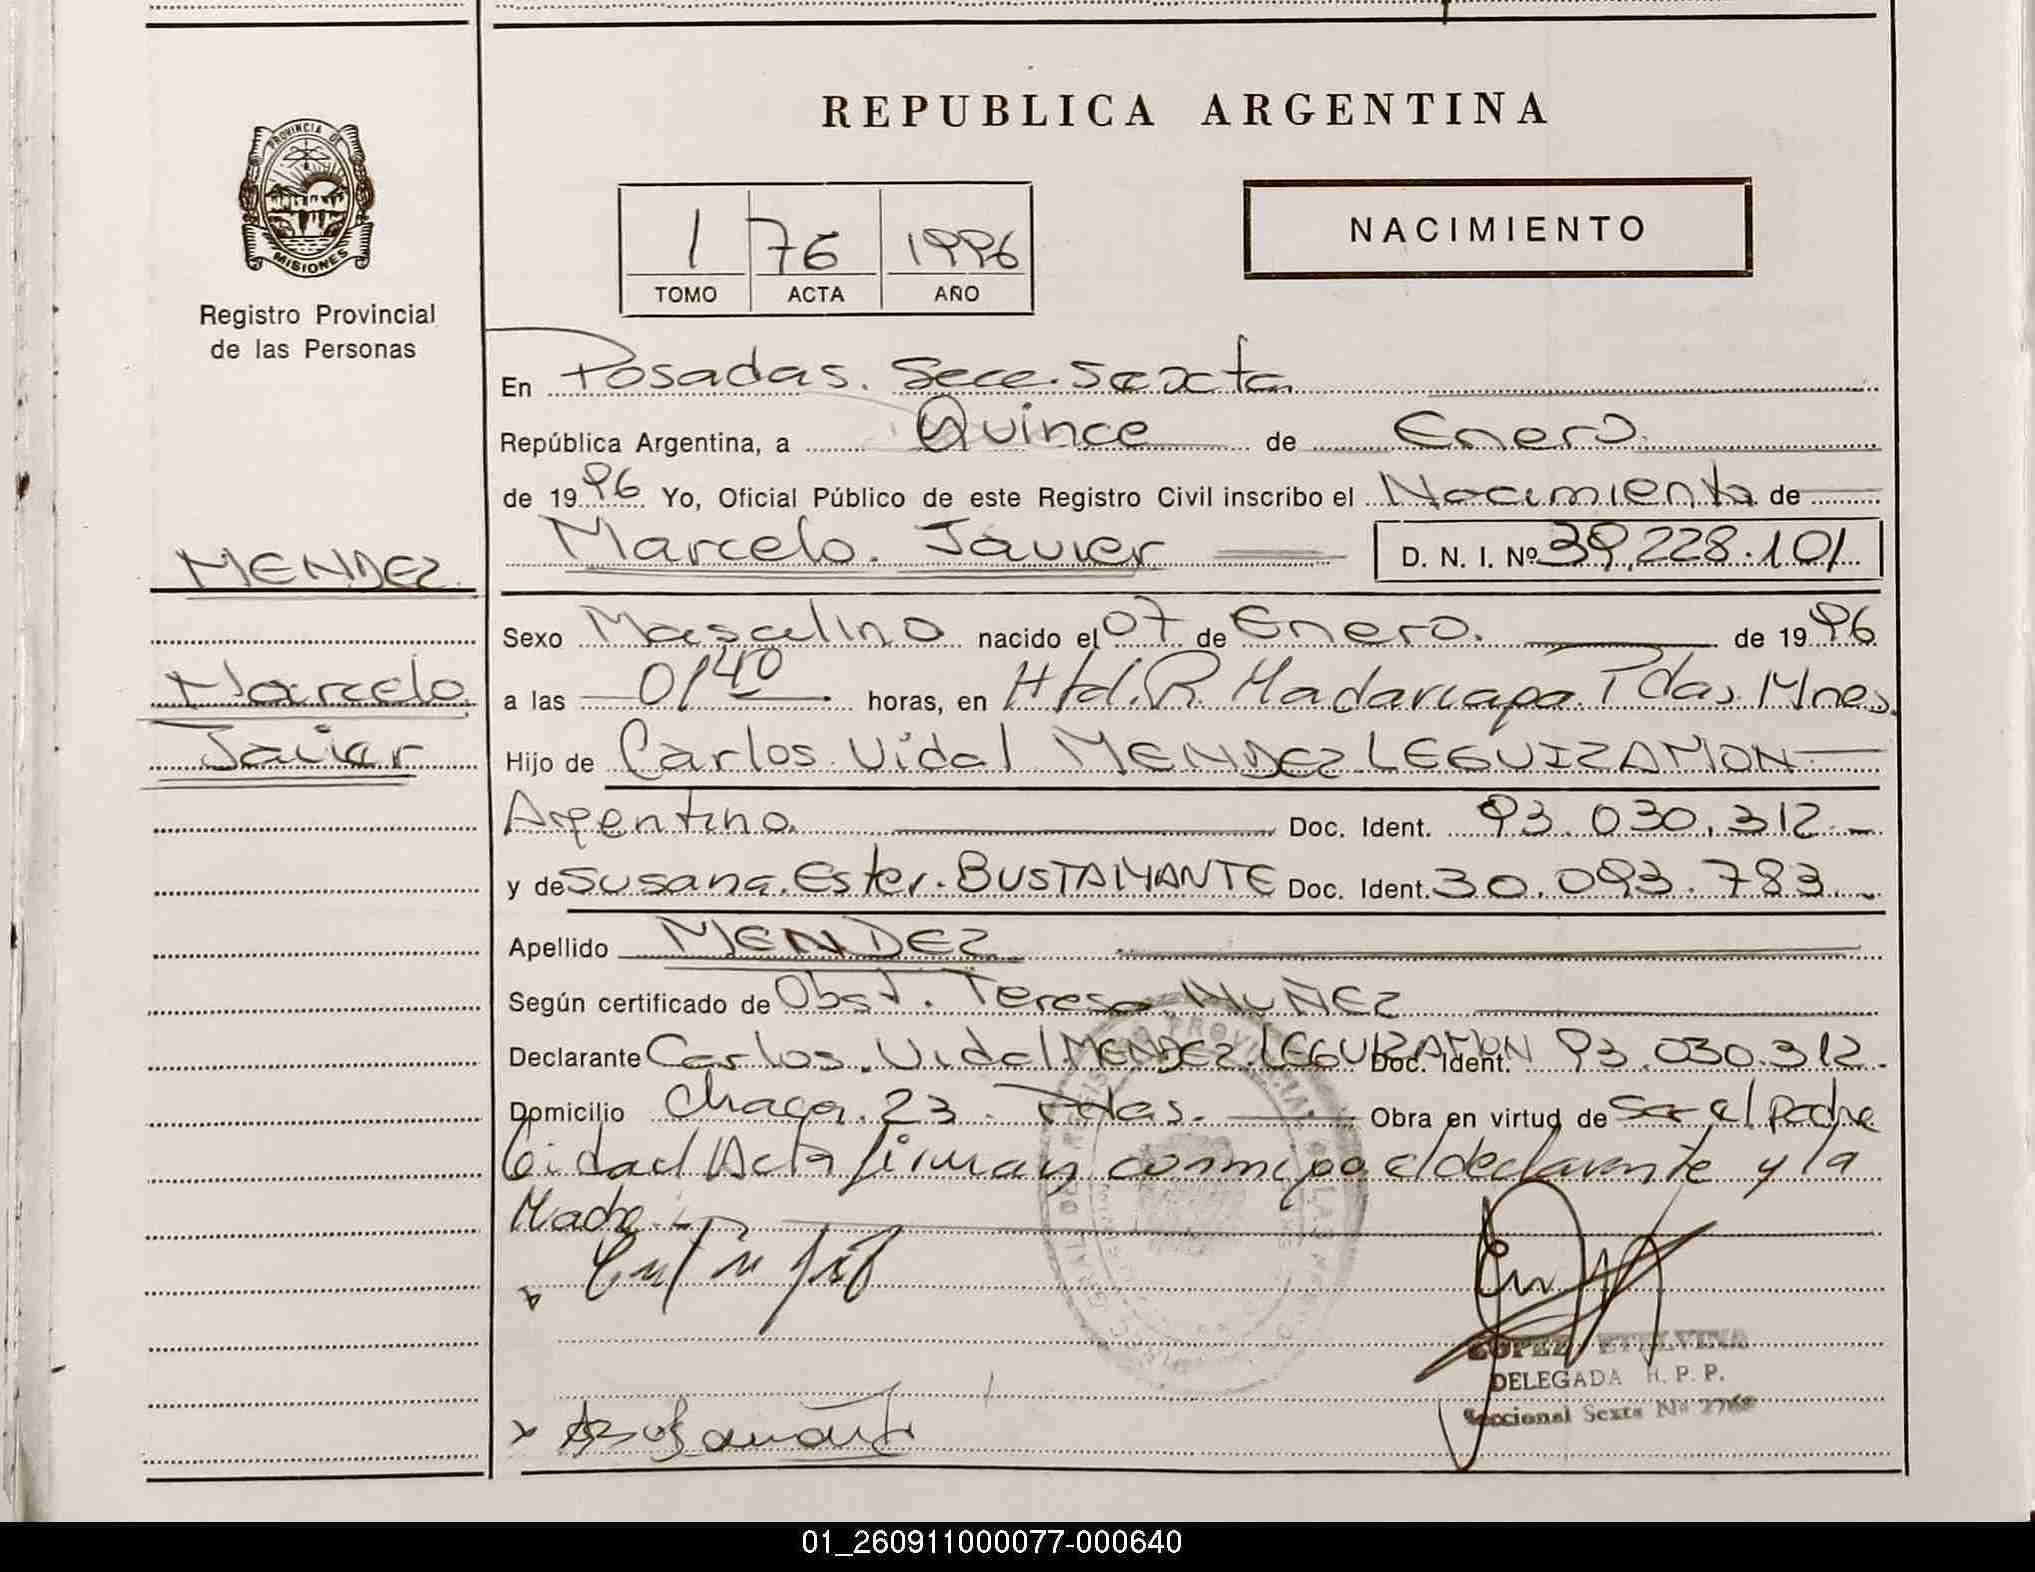 REPUBLICA ARGENTINA
PROVINCIA DE
MISIONES
Registro Provincial
de las Personas
1 76 1996
TOMO ACTA AÑO
NACIMIENTO
En Posadas. Secc. Sexta
República Argentina, a Quince de Enero
de 1996 Yo, Oficial Público de este Registro Civil inscribo el Nacimiento de
Marcelo Javier D. N. I. Nº 39.228.101
MENDEZ
Marcelo
Javier
Sexo Masculino nacido el 07 de Enero. de 1996
a las 0140 horas, en Htal. R. Madariaga. Pdas. Mnes.
Hijo de Carlos Vidal MENDEZ LEGUIZAMON
Argentino Doc. Ident. 93.030.312
y de Susana Ester BUSTAMANTE Doc. Ident. 30.093.783
Apellido MENDEZ
Según certificado de Obst. Teresa MUÑEZ
Declarante Carlos Vidal MENDEZ LEGUIZAMON Doc. Ident. 93.030.312
Domicilio Chacra 23 Pdas. Obra en virtud de ser el padre
Leida el Acta firman conmigo el declarante y la
Madre
LOPEZ ETELVINA
DELEGADA R. P. P.
Seccional Sexta Nº
01_260911000077-000640